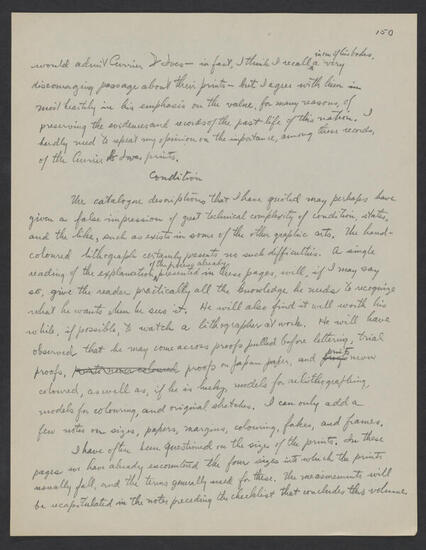 150
in one of his books,
would admit Currier & Ives - in fact, I think I recall a very
discouraging passage about their prints - but I agree with him in
most heartily in his emphasis on the value, for many reasons, of
preserving the evidences and records of the past life of this nation. I
hardly need to repeat my opinion on the importance, among these records,
of the Currier & Ives prints.
Condition
The catalogue descriptions that I have quoted may perhaps have
given a false impression of great technical complexity of condition, states,
and the like, such as exists in some of the other graphic arts. The hand-
coloured lithograph certainly presents no such difficulties. A single
of the process already
reading of the explanation presented in these pages, will, if I may say
so, give the reader practically all the knowledge he needs to recognize
what he wants when he sees it. He will also find it well worth his
while, if possible, to watch a lithographer at work. He will have
observed that he may come across proofs pulled before lettering, trial
prints
proofs, proofs on Japan paper, and never
coloured, as well as, if he is lucky, models for relithographing,
models for colouring, and original sketches. I can only add a
few notes on sizes, papers, margins, colouring, fakes, and frames.
I have often been questioned on the sizes of the prints. In these
pages we have already encountered the four sizes into which the prints
usually fall, and the terms generally used for these. The measurements will
be recapitulated in the notes preceding the checklist that concludes this volume.